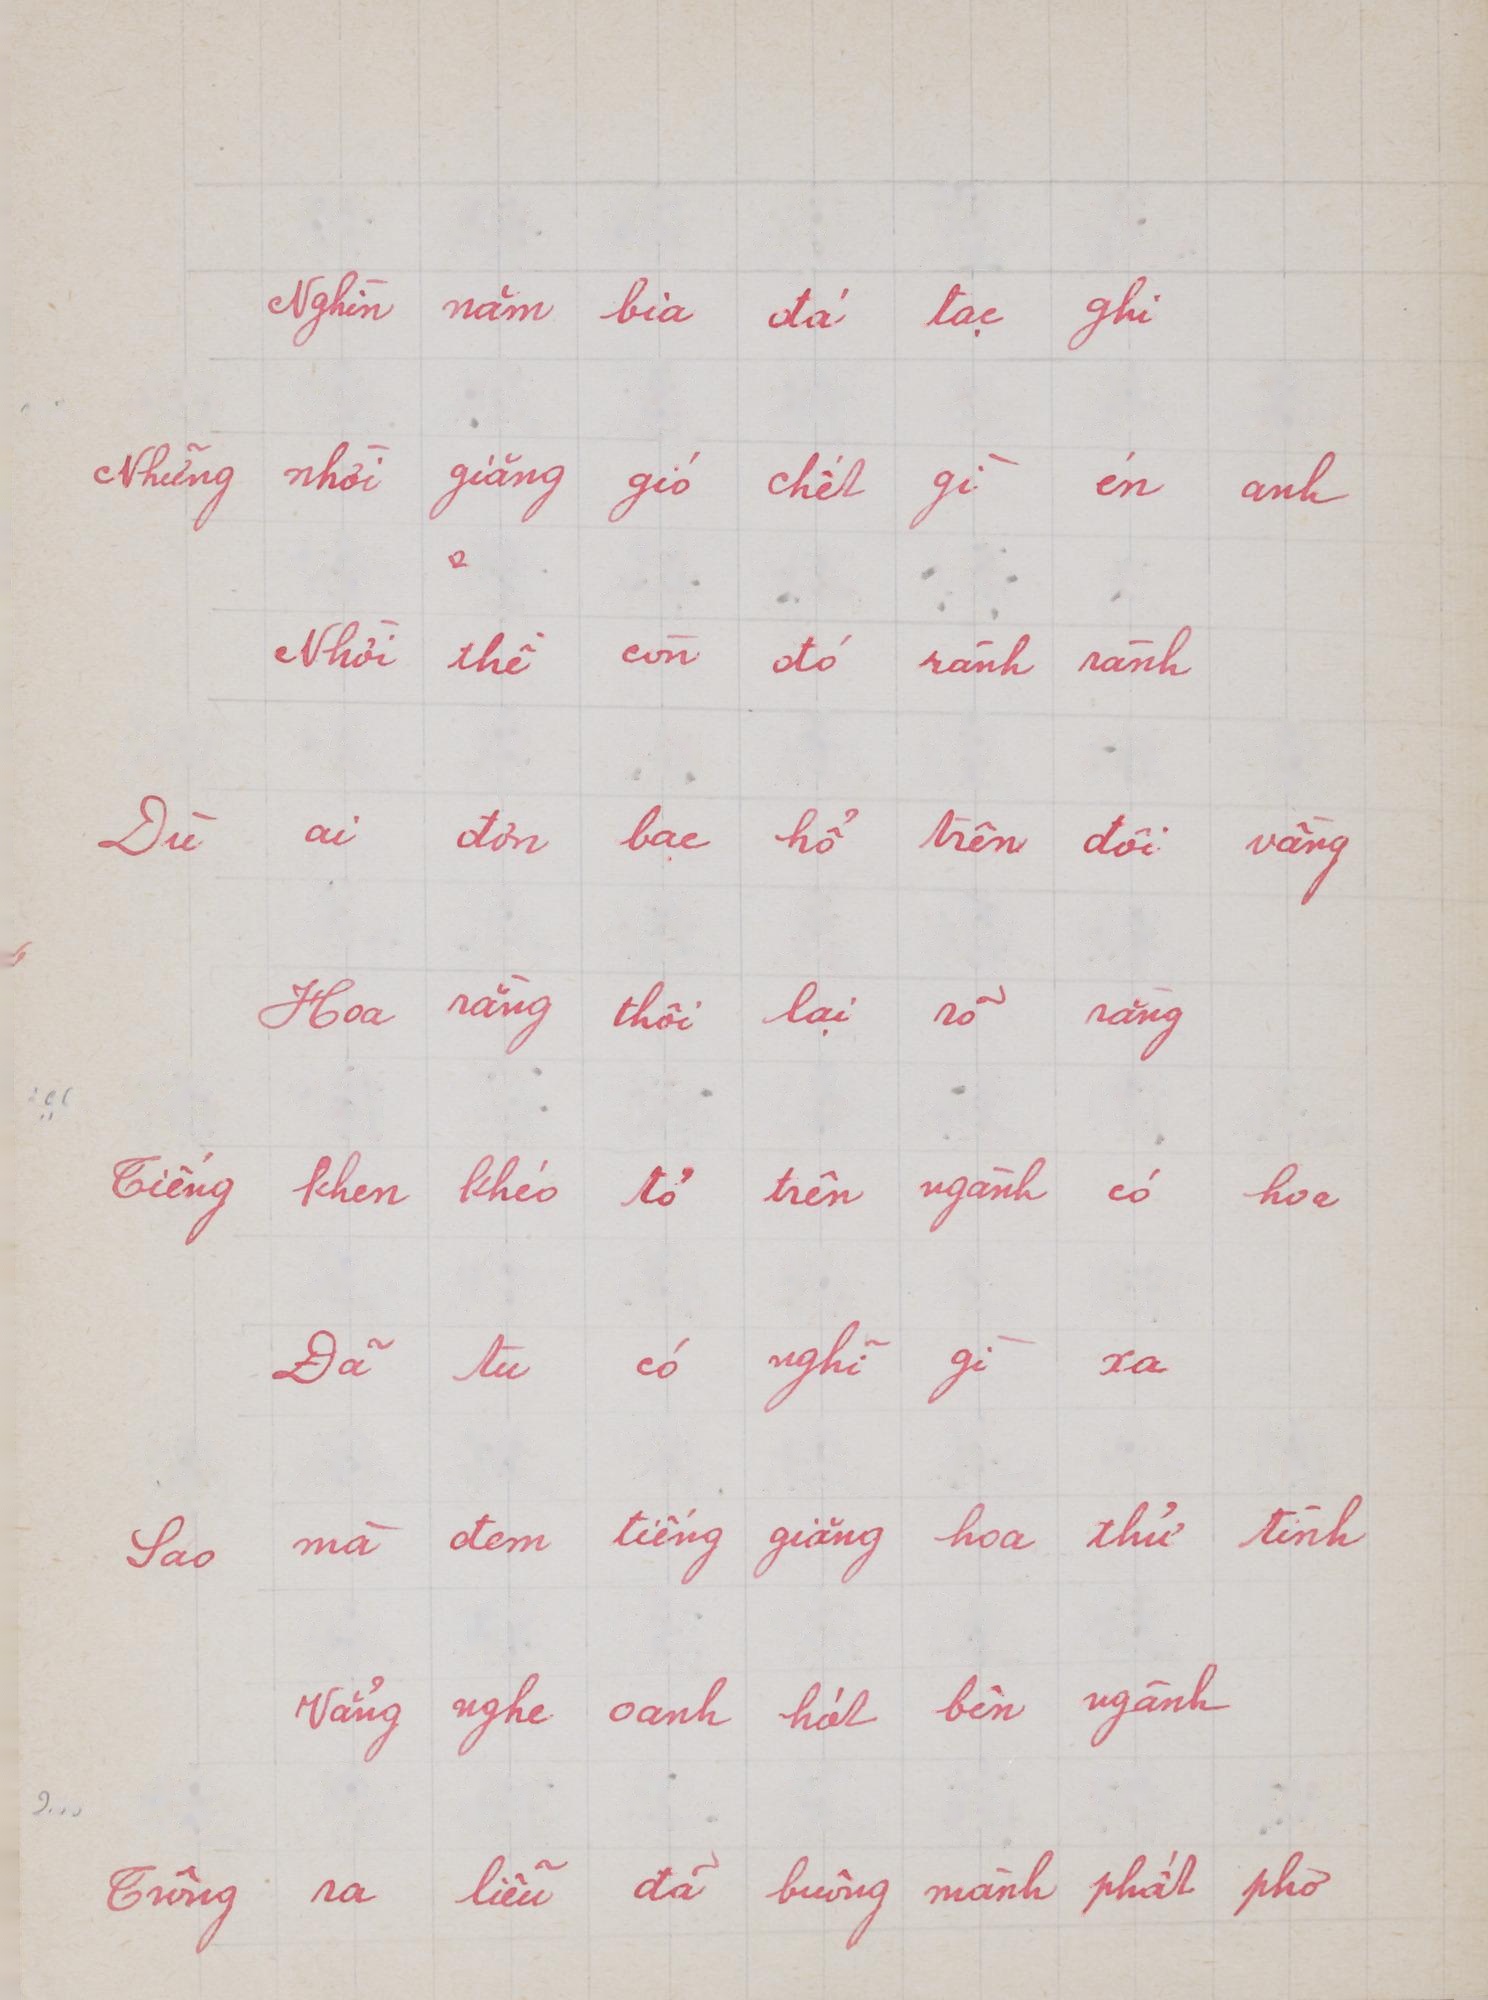 Nghìn năm bia đá tạc ghi
Những nhời giăng gió chết gì én anh
Nhời thề còn đó rành rành
Dù ai đơn bạc hổ trên đôi vầng
Hoa rằng thôi lại rõ rằng
Tiếng khen khéo tỏ trên ngành có hoa
Đã tu có nghĩ gì xa
Sao mà đem tiếng giăng hoa thử tình
Vẳng nghe oanh hót bên ngành
Trông ra liễu đã buông mành phất phơ